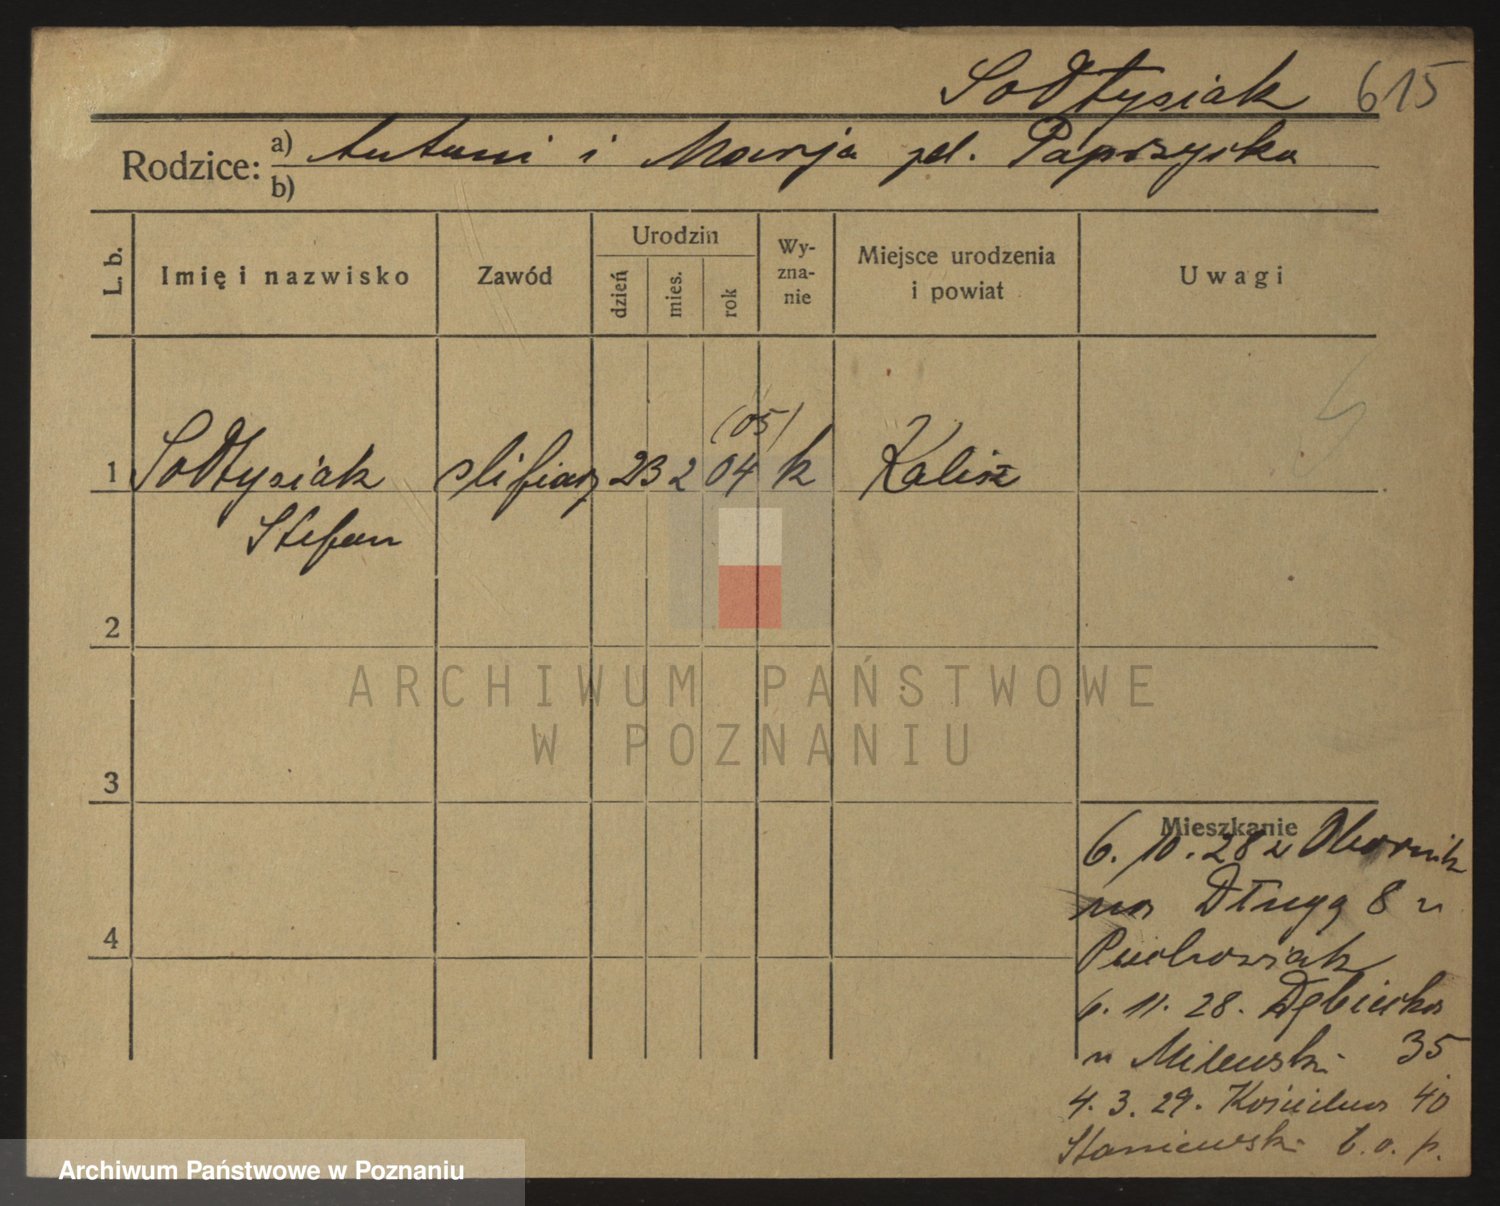 Sołtysiak 615
Rodzice: a) Antoni i Marja zd. Paprzycka
b)
L. b. Imię i nazwisko Zawód Urodzin dzień mies. rok Wy-zna-nie Miejsce urodzenia i powiat Uwagi
(05)
1 Sołtysiak szlifierz 23 2 04 k Kalisz
Stefan
2
ARCHIWUM PAŃSTWOWE
W POZNANIU
3
Mieszkanie
6.10.28 z Obornik
na Długą 8 u
4
6.11.28. Dębińska
u Milewski 35
4.3.29. 40
Staniewski b.o.p.
Archiwum Państwowe w Poznaniu